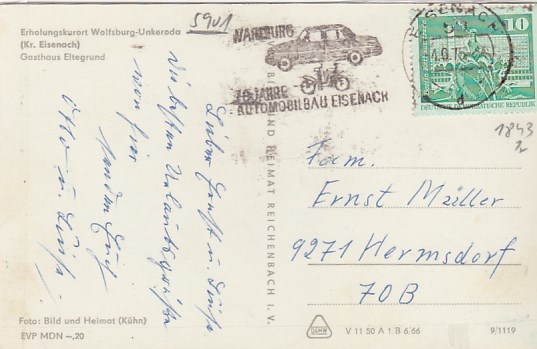 Erholungskurort Wolfsburg-Unkeroda
(Kr. Eisenach)
Gasthaus Eltegrund
5901
WARTBURG
75 JAHRE
AUTOMOBILBAU EISENACH
EISENACH
10
DEUTSCHE DEMOKRATISCHE REPUBLIK
1843
Lieber Ernst u. Luise
die besten Urlaubsgrüße
von hier
senden Euch
Otto u. Luise.
BILD UND HEIMAT REICHENBACH I. V.
Fam.
Ernst Müller
9271 Hermsdorf
70B
Foto: Bild und Heimat (Kühn)
EVP MDN –,20
V 11 50 A 1 B 6.66
9/1119